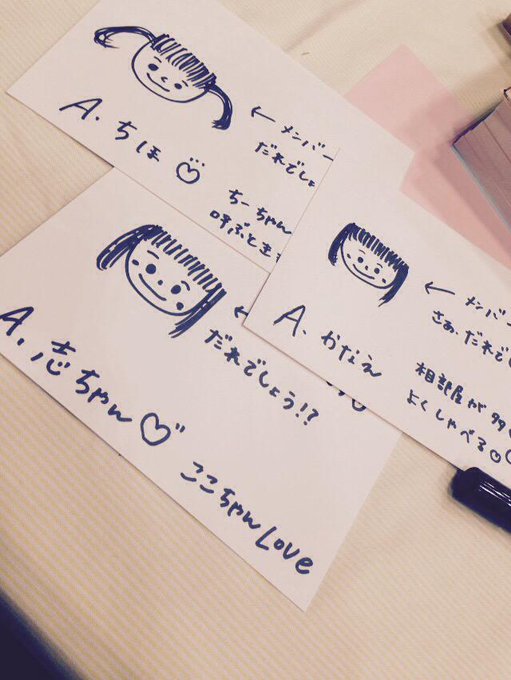 ← メンバー
だれでしょ
A. ちほ
ちーちゃん
呼ぶとき
← メンバー
さぁ、だれで
A. かなえ
相部屋が多
よくしゃべる
←
だれでしょう!?
A. 志ちゃん♡
ここちゃん Love